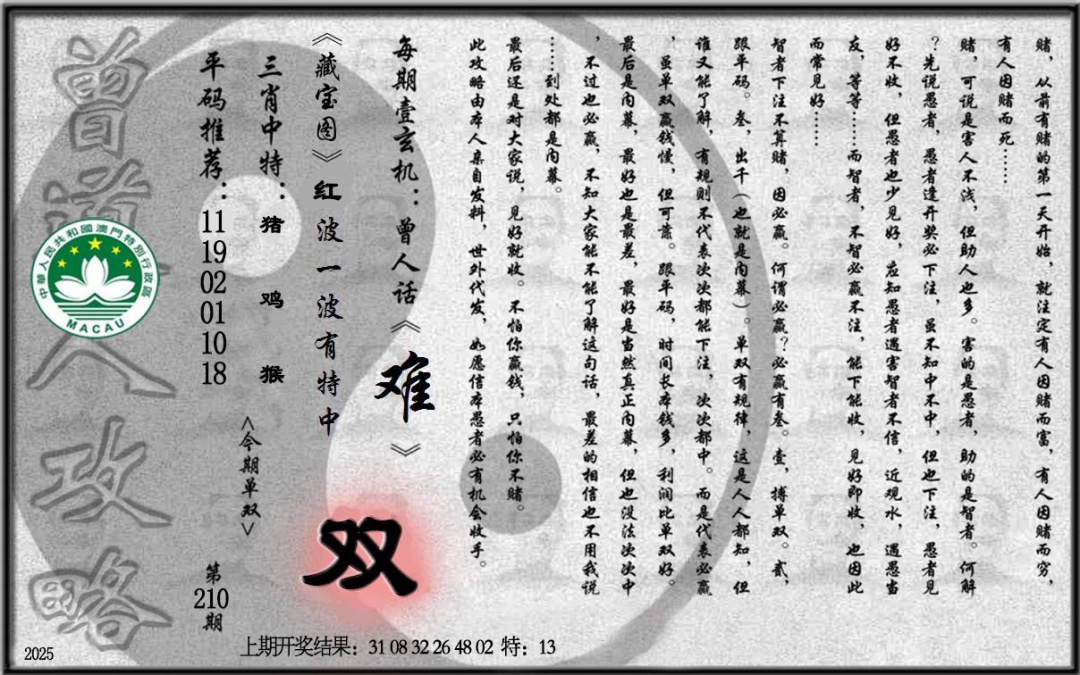 赌，从前有赌的第一天开始，就注定有人因赌而富，有人因赌而穷，
有人因赌而死……
赌，可说是害人不浅，但助人也多。害的是愚者，助的是智者。何解
？先说愚者，愚者逢开奖必下注，虽不知中不中，但也下注，愚者见
好不收，但愚者也少见好，应知愚者遇害智者不信，近观水，遇愚当
友，等等……而智者，不智必赢不注，能下能收，见好即收，也因此
而常见好……
智者下注不算赌，因必赢。何谓必赢？必赢有叁。壹，搏单双。贰，
跟平码。叁，出千（也就是内幕）。单双有规律，这是人人都知，但
谁又能了解，有规则不代表次次都能下注，次次都中。而是代表必赢
，虽单双赢钱慢，但可靠。跟平码，时间长本钱多，利润比单双好。
最后是内幕，最好也是最差，最好是当然真正内幕，但也没法次次中
，不过也必赢，不知大家能不能了解这句话，最差的相信也不用我说
……到处都是内幕。
最后还是对大家说，见好就收。不怕你赢钱，只怕你不赌。
此攻略由本人亲自发料，世外代发，如愿信本愚者必有机会收手。
每期壹玄机：曾人话《难》
《藏宝图》红波一波有特中
双
三肖中特：猪 鸡 猴
<今期单双>
平码推荐：11 19 02 01 10 18
第210期
曾道人攻略
中華人民共和國澳門特別行政區
MACAU
上期开奖结果：31 08 32 26 48 02 特：13
2025